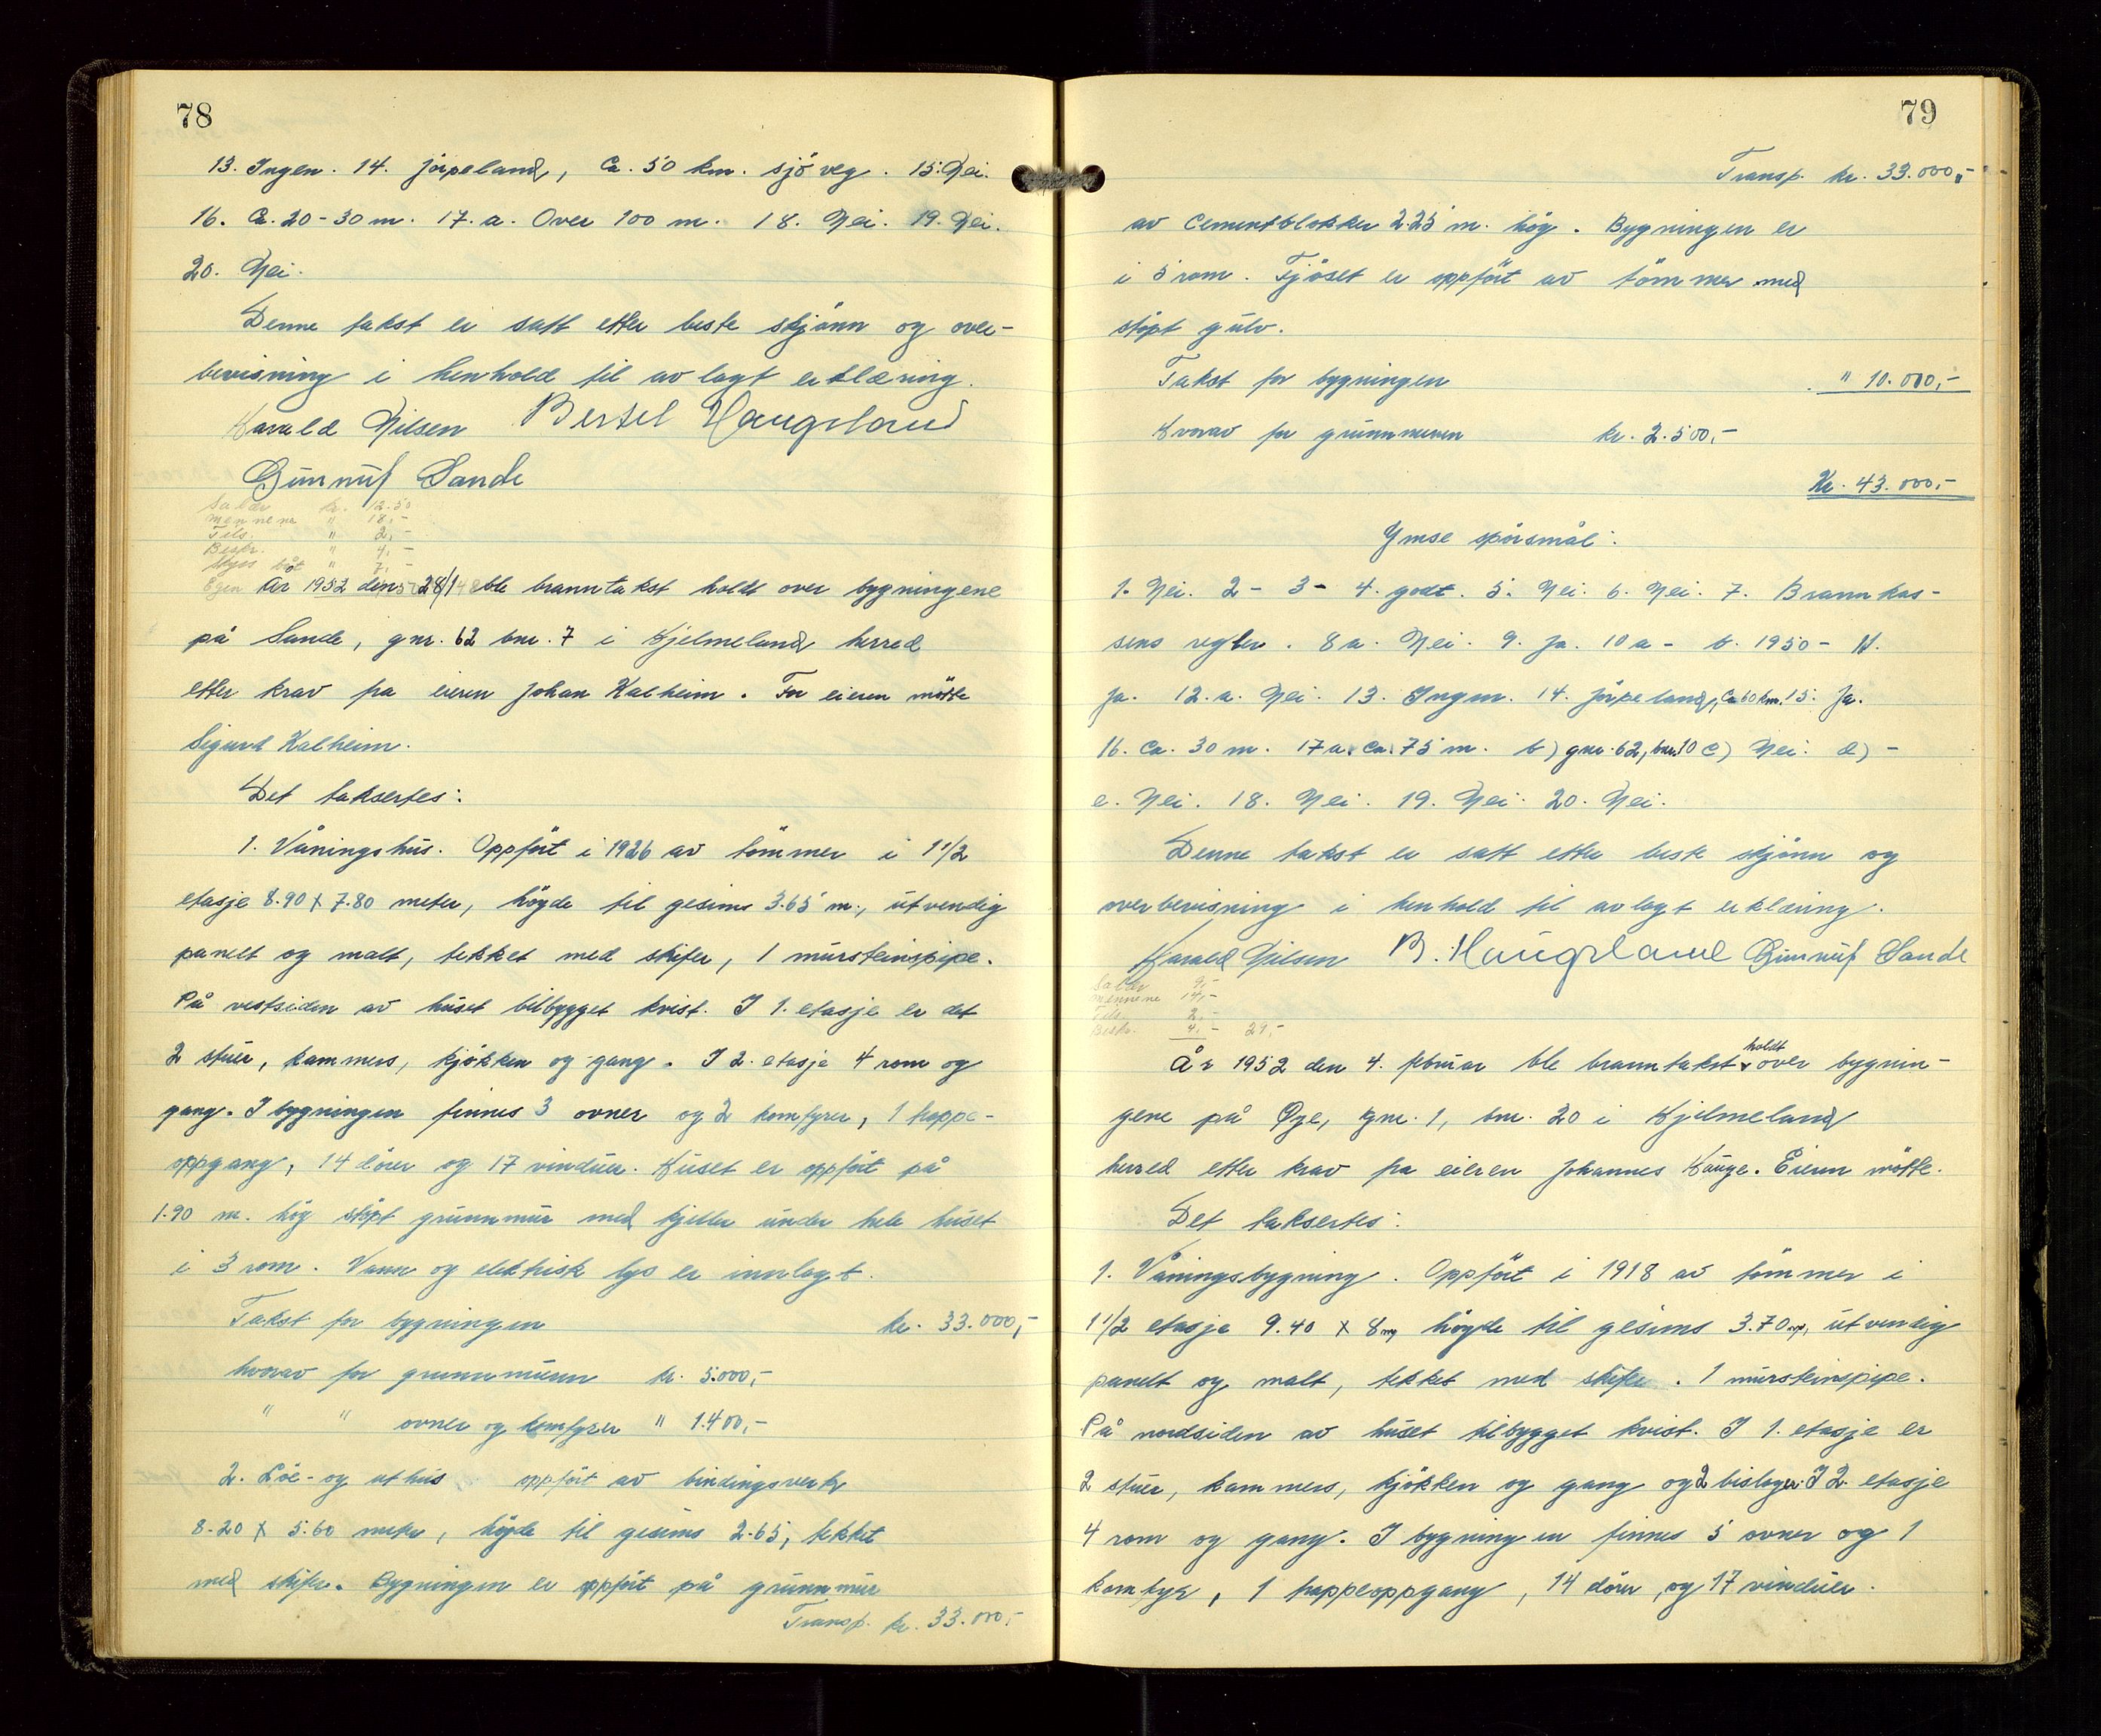 78
13. Ingen. 14. Jørpeland, ca. 50 km. sjöveg. 15. Nei.
16. Ca. 20-30 m. 17. a. Over 100 m. 18. Nei. 19. Nei.
20. Nei.
Denne takst er satt etter beste skjönn og over-
bevisning i henhold til avlagt erklæring.
Harald Nilsen Bertel Haugsland
Gunnulf Sande
Salær kr. 12.50
mennene " 18,-
Tils. " 2,-
Beskr. " 4,-
Skyss båt " 7,-
Egen
År 1952 den 28/1 ble branntakst holdt over bygningene
på Sande, gnr. 62 bnr. 7 i Hjelmeland herred
etter krav fra eieren Johan Kalheim. For eieren mötte
Sigurd Kalheim.
Det taksertes:
1. Våningshus. Oppfört i 1926 av tömmer i 1 1/2
etasje 8.90 x 7.80 meter, högde til gesims 3.65 m., utvendig
panelt og malt, tekket med skifer, 1 mursteinspipe.
På vestsiden av huset tilbygget kvist. I 1. etasje er det
2 stuer, kammers, kjökken og gang. I 2. etasje 4 rom og
gang. I bygningen finnes 3 ovner og 2 komfyrer, 1 trappe-
oppgang, 14 dörer og 17 vinduer. Huset er oppfört på
1.90 m. hög stöpt grunnmur med kjeller under hele huset
i 3 rom. Vann og elektrisk lys er innlagt.
Takst for bygningen kr. 33.000,-
hvorav for grunnmuren kr. 5.000,-
" " ovner og komfyrer " 1.400,-
2. Löe- og uthus oppfört av bindingsverk
8.20 x 5.60 meter, högde til gesims 2.65, tekket
med skifer. Bygningen er oppfört på grunnmur
Transp. kr. 33.000,-
79
Transp. kr. 33.000,-
av cementblokker 2.25 m. hög. Bygningen er
i 5 rom. Fjöset er oppfört av tömmer med
stöpt gulv.
Takst for bygningen " 10.000,-
Hvorav for grunnmuren kr. 2.500,-
Kr. 43.000,-
Ymse spörsmål:
1. Nei. 2 - 3 - 4. godt. 5. Nei. 6. Nei. 7. Brannkas-
sens regler. 8 a. Nei. 9. Ja. 10 a - b. 1950 - 11.
Ja. 12. a. Nei. 13. Ingen. 14. Jörpeland, ca 60 km. 15. Ja.
16. Ca. 30 m. 17 a. ca. 75 m. b) gnr. 62, bnr. 10 c) Nei. d) -
e. Nei. 18. Nei. 19. Nei. 20. Nei.
Denne takst er satt etter beste skjönn og
overbevisning i henhold til avlagt erklæring.
Harald Nilsen B. Haugsland Gunnulf Sande
Salær 9,-
mennene 14,-
Tils. 2,-
Beskr. 4,- 29,-
År 1952 den 4. februar ble branntakst holdt over bygnin-
gene på Øye, gnr. 1, bnr. 20 i Hjelmeland
herred etter krav fra eieren Johannes Hauge. Eieren mötte.
Det taksertes:
1. Våningsbygning. Oppfört i 1918 av tömmer i
1 1/2 etasje 9.40 x 8 m, högde til gesims 3.70 m, utvendig
panelt og malt, tekket med skifer. 1 mursteinspipe.
På nordsiden av huset tilbygget kvist. I 1. etasje er
2 stuer, kammers, kjökken og gang og 2 bislager. I 2. etasje
4 rom og gang. I bygningen finnes 5 ovner og 1
komfyr, 1 trappeoppgang, 14 dörer, og 17 vinduer.